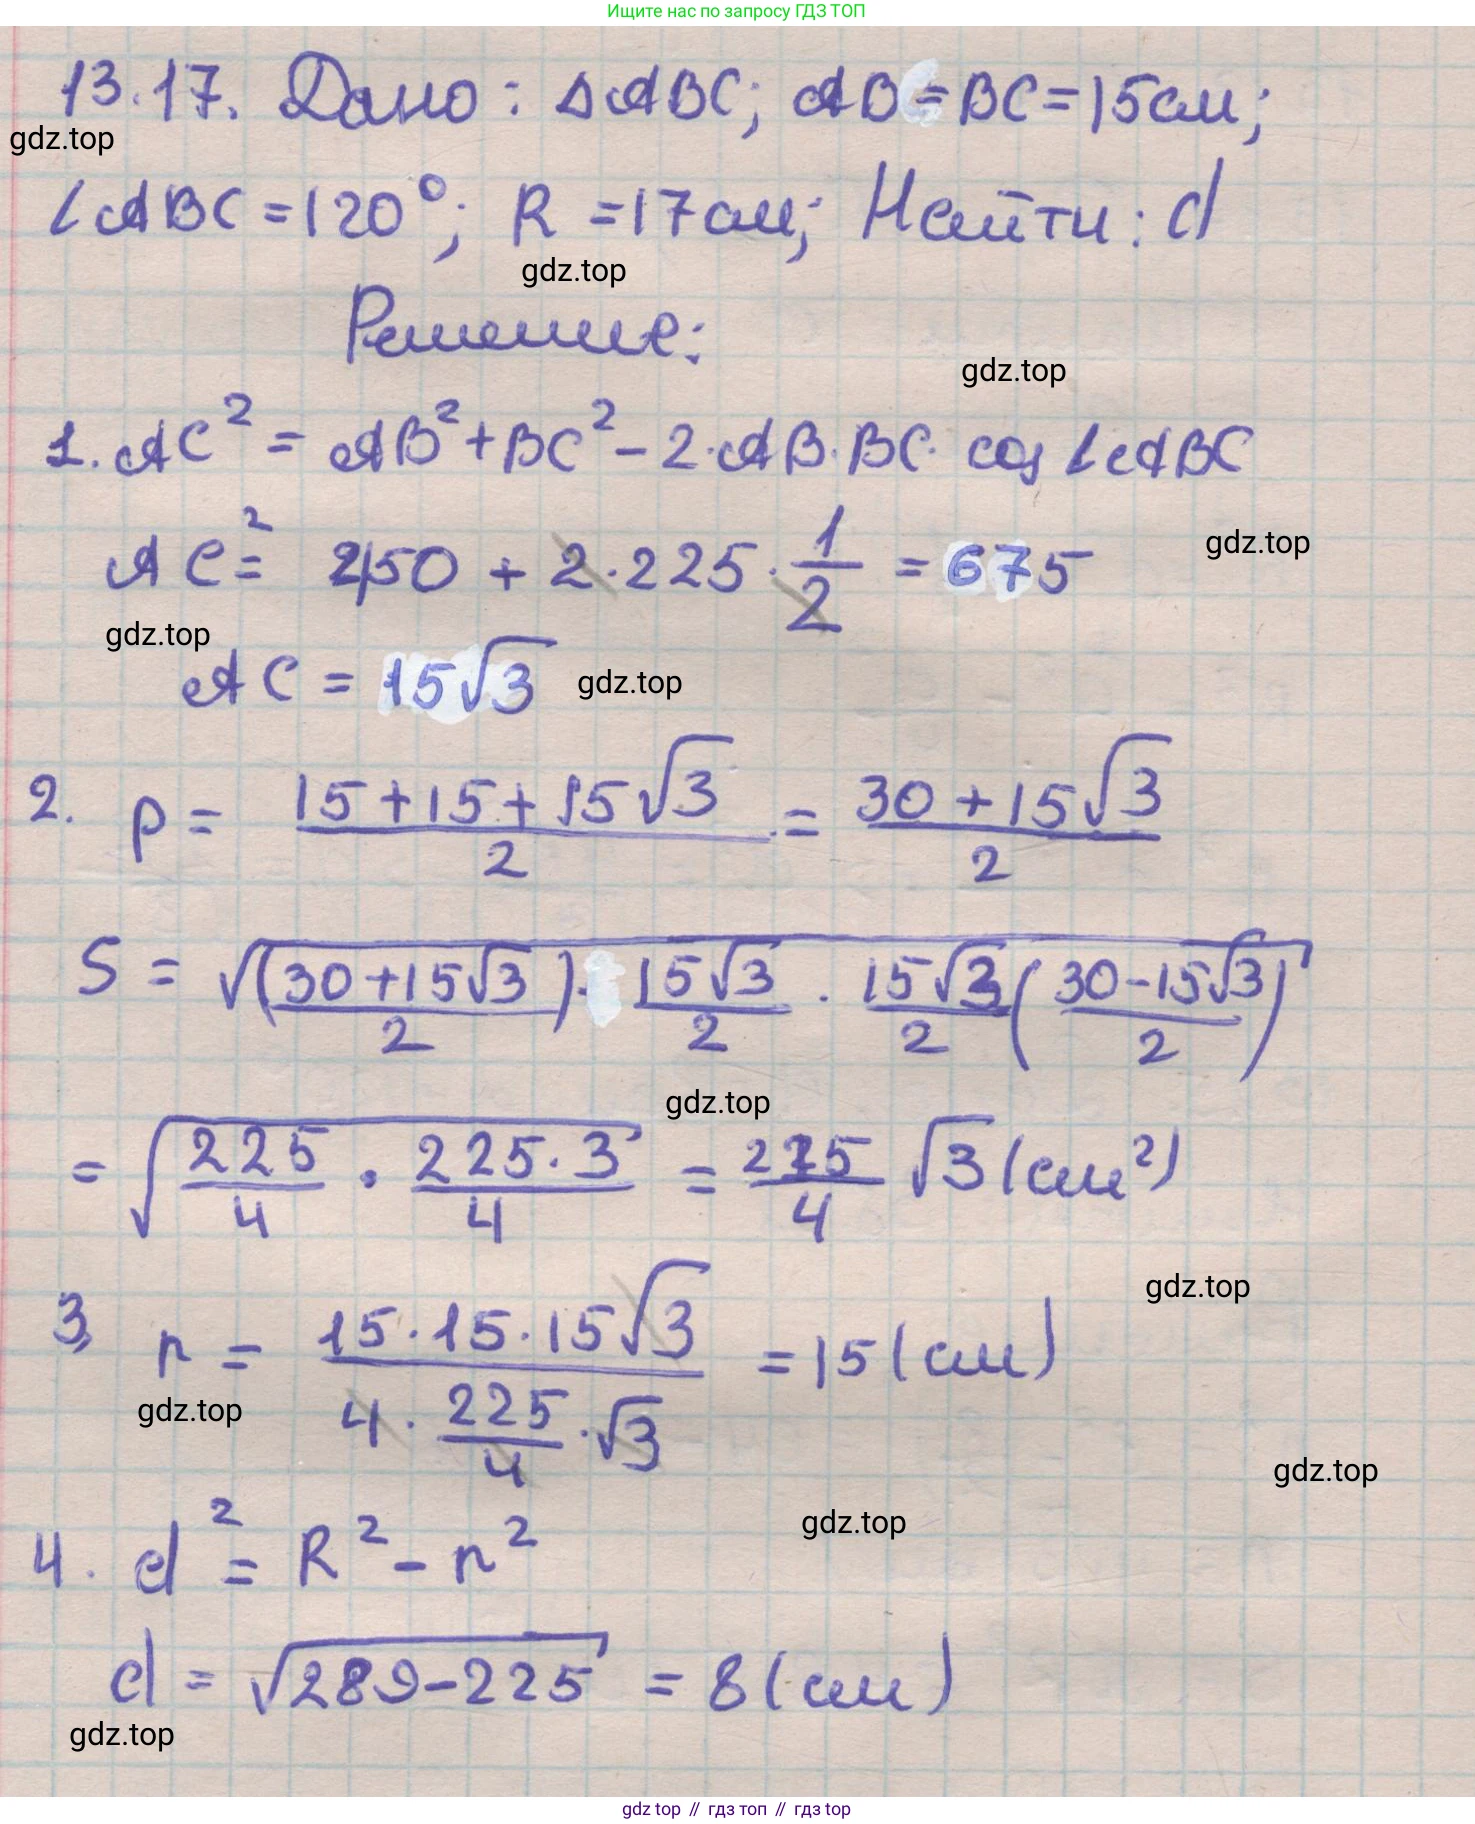 Ищите нас по запросу ГДЗ ТОП
13.17. Дано: ΔABC; AB=BC=15см;
gdz.top
∠ABC=120°; R=17см; Найти: d
gdz.top
Решение:
gdz.top
1. AC² = AB²+BC²-2·AB·BC·cos∠ABC
AC² = 450 + 2·225·1/2 = 675
gdz.top
gdz.top
AC = 15√3
gdz.top
2. p = (15+15+15√3)/2 = (30+15√3)/2
S = √((30+15√3)/2)·15√3/2·15√3/2((30-15√3)/2)
gdz.top
= √(225/4·225·3/4) = 225/4 √3 (см²)
gdz.top
3. r = (15·15·15√3)/(4·225/4·√3) = 15 (см)
gdz.top
gdz.top
gdz.top
4. d² = R²-r²
d = √(289-225) = 8 (см)
gdz.top
gdz top // гдз топ // гдз top